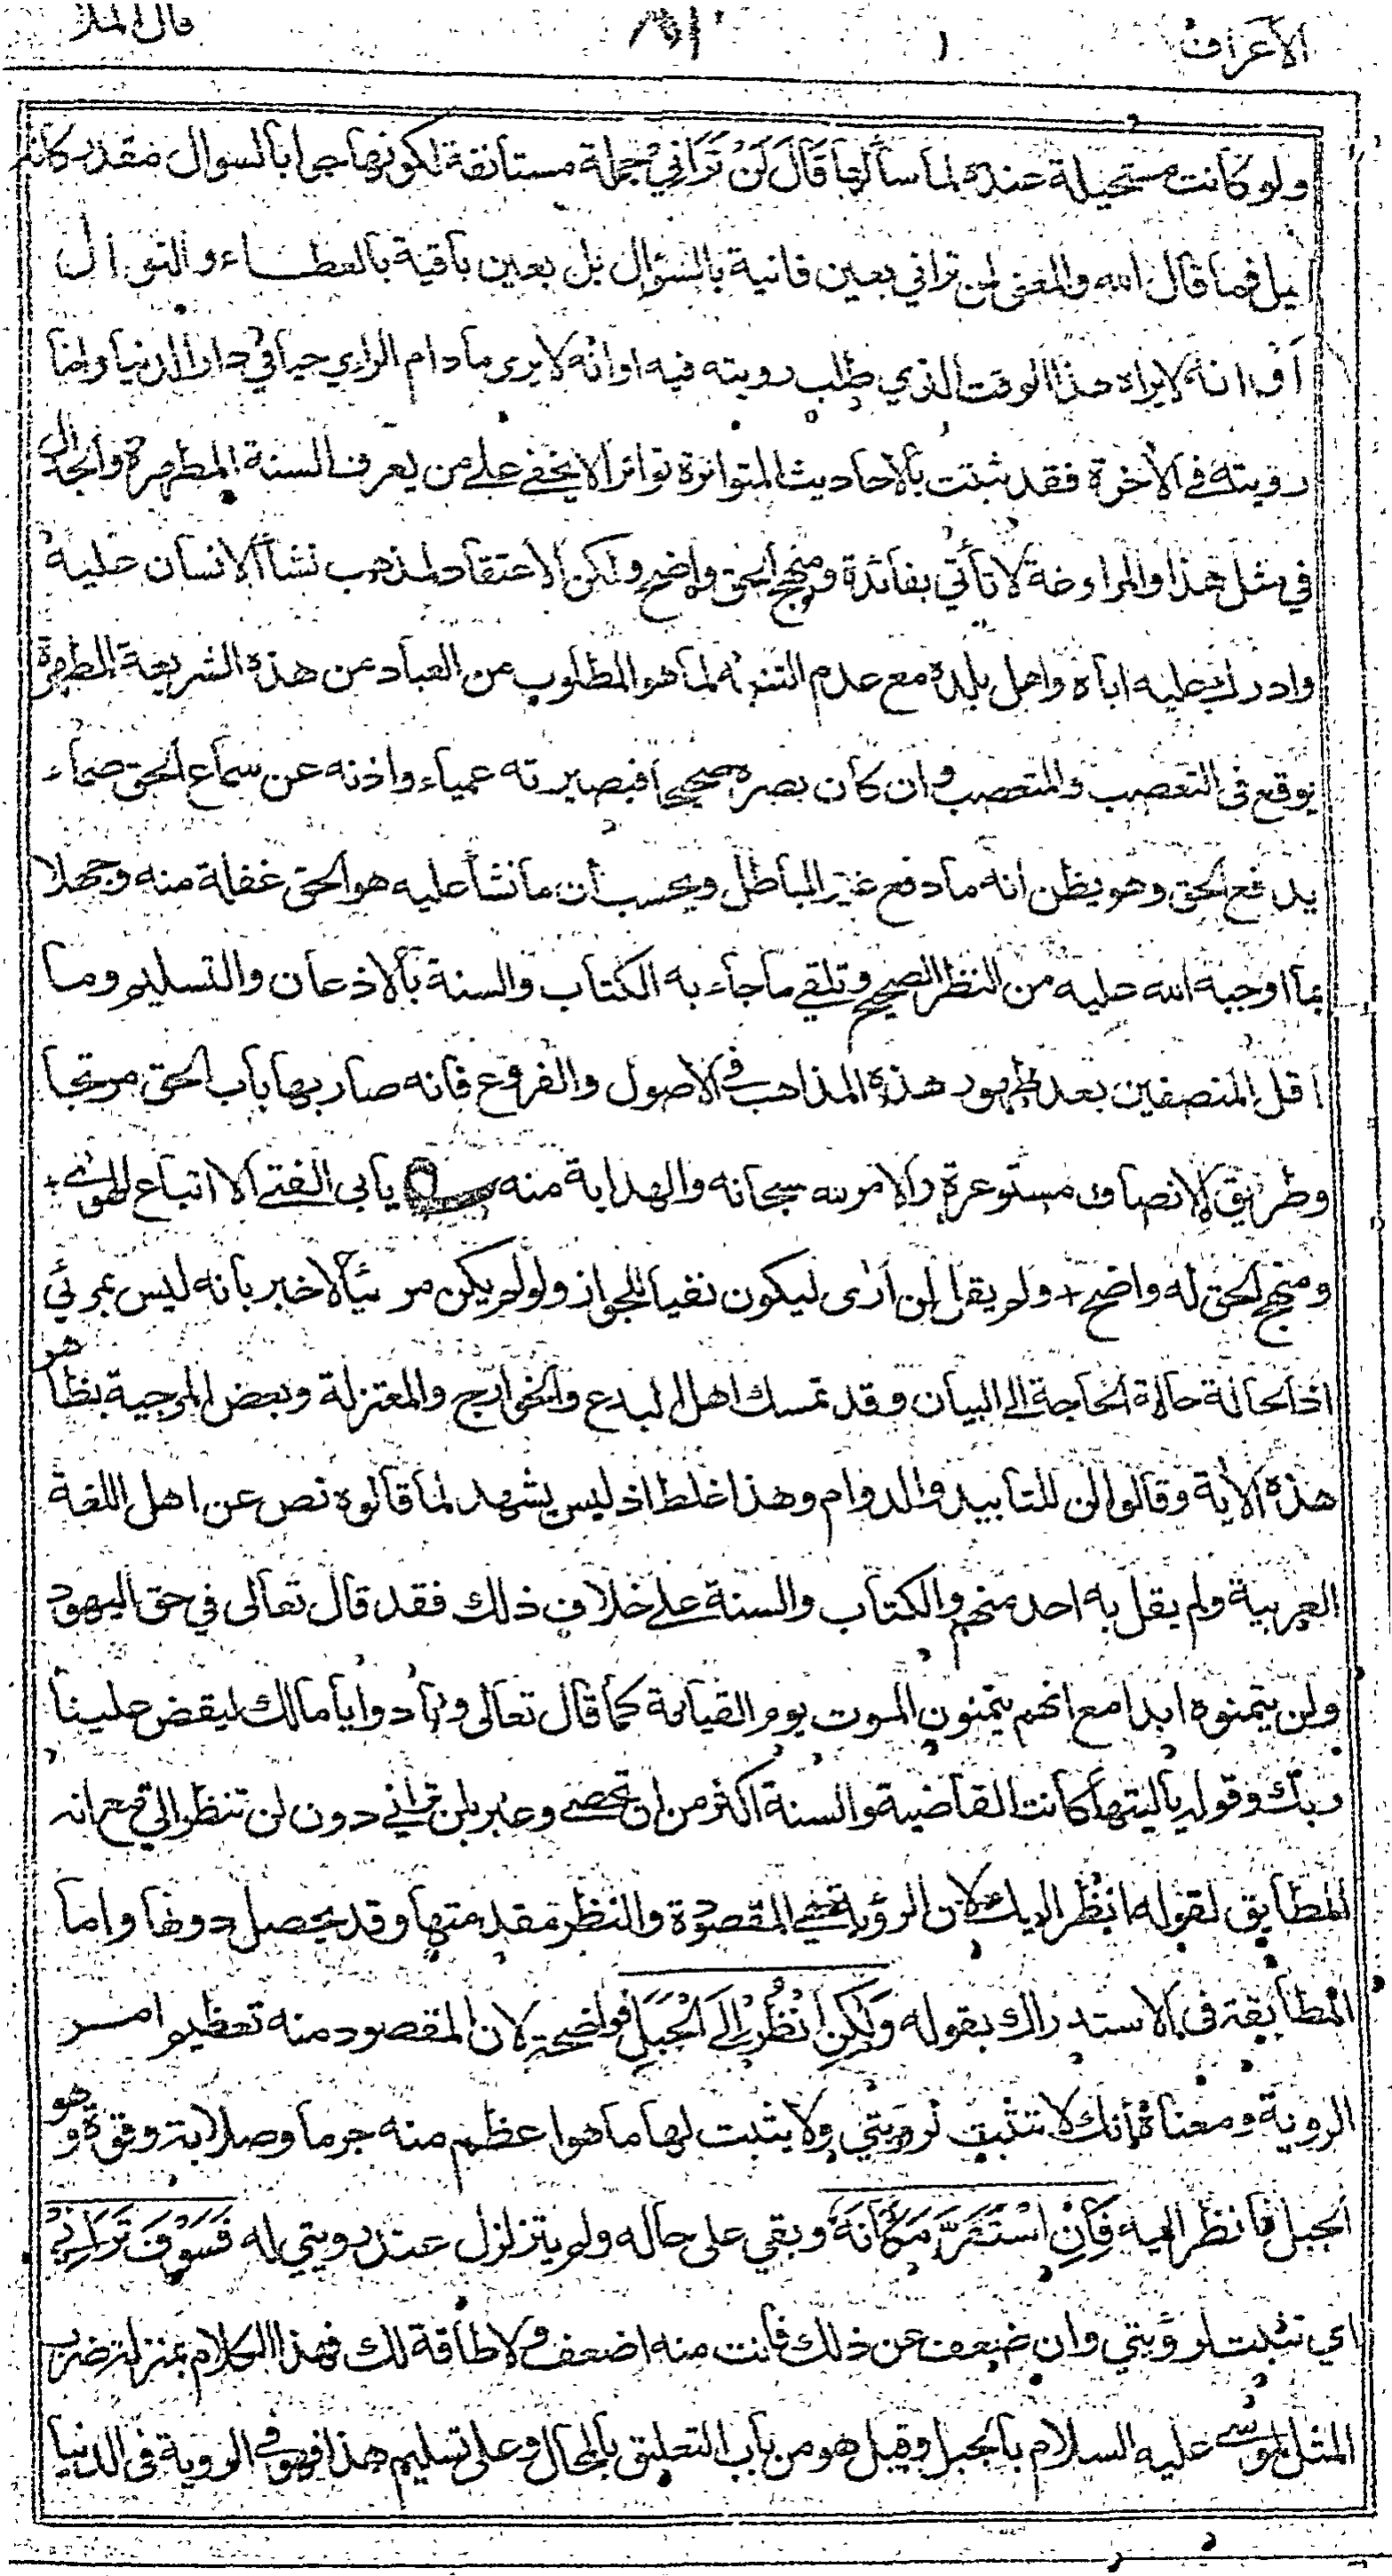 الأعراف
قال الملأ
ولو كانت مستحيلة عنده لما سألها قَالَ لَنْ تَرَانِي جملة مستأنفة لكونها جوابا لسوال مقدر كانه
قيل فما قال الله والمعنى لن تراني بعين فانية بالسؤال بل بعين باقية بالعطاء والنوال
او انه لا يراه هذا الوقت الذي طلب رويته فيه او انه لا يرى ما دام الرائي حيا في دار الدنيا واما
رويته في الاخرة فقد ثبتت بالاحاديث المتواترة تواترا لا يخفى على من يعرف السنة المطهرة والجدال
في مثل هذا والمراوغة لا تأتي بفائدة ومنهج الحق واضح ولكن الاعتقاد لمذهب نشأ الانسان عليه
وادرك عليه اباه واهل بلده مع عدم التنبه لما هو المطلوب من العباد من هذه الشريعة المطهرة
يوقع فى التعصب والمتعصب وان كان بصره صحيحا فبصيرته عمياء واذنه عن سماع الحق صماء
يدفع الحق وهو يظن انه ما دفع غير الباطل ويحسب أن ما نشأ عليه هو الحق غفلة منه وجهلا
بما اوجبه الله عليه من النظر الصحيح وتلقي ما جاء به الكتاب والسنة بالاذعان والتسليم وما
اقل المنصفين بعد ظهور هذه المذاهب في الاصول والفروع فانه صار بها باب الحق مرتجا
وطريق الانصاف مستوعرة والامر لله سبحانه والهداية منه يأبى الفتى الا اتباع الهوى +
ومنهج الحق له واضح + ولم يقل لن أرى ليكون نفيا للجواز ولو لم يكن مرئيا لاخبر بانه ليس بمرئي
اذ الحالة حالة الحاجة الى البيان وقد تمسك اهل البدع والخوارج والمعتزلة وبعض المرجية بظاهر
هذه الاية وقالوا لن للتابيد والدوام وهذا غلط اذ ليس يشهد لما قالوه نص عن اهل اللغة
العربية ولم يقل به احد منهم والكتاب والسنة على خلاف ذلك فقد قال تعالى في حق اليهود
ولن يتمنوه ابدا مع انهم يتمنون الموت يوم القيامة كما قال تعالى ونادوا يا مالك ليقض علينا
ربك وقوله يا ليتها كانت القاضية والسنة اكثر من ان تحصى وعبر بلن تراني دون لن تنظر الي مع انه
المطابق لقوله انظر اليك لان الرؤية هي المقصودة والنظر مقدمتها وقد يحصل دونها واما
المطابقة فى الاستدراك بقوله وَلَكِنِ انْظُرْ إِلَى الْجَبَلِ فواضحة لان المقصود منه تعظيم امر
الروية ومعناه أنك لا تثبت لرويتي ولا يثبت لها ما هو اعظم منه جرما وصلابة وقوة وهو
الجبل فانظر اليه فَإِنِ اسْتَقَرَّ مَكَانَهُ وبقي على حاله ولم يتزلزل عند رويتي له فَسَوْفَ تَرَانِي
اي تثبت لرؤيتي وان ضعف عن ذلك فانت منه اضعف ولا طاقة لك فهذا الكلام بمنزلة ضرب
المثل لموسى عليه السلام بالجبل وقيل هو من باب التعليق بالمحال وعلى تسليم هذا فهو في الروية فى الدنيا